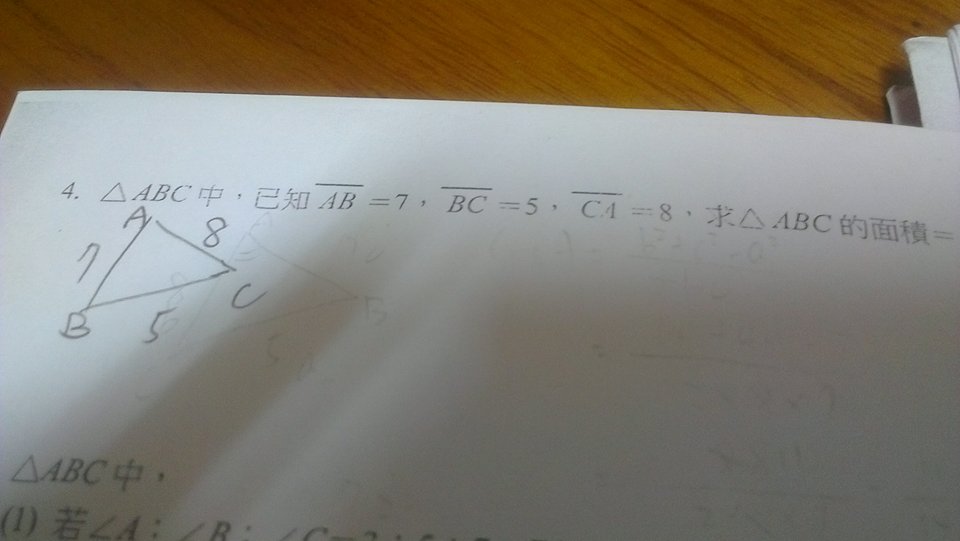 4. △ABC中,已知 \overline{AB}=7, \overline{BC}=5, \overline{CA}=8,求△ABC的面積=
A
8
7
C
B
5
△ABC中,
(1) 若∠A:∠B:∠C=